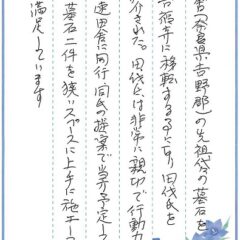 (奈良県吉野郡)の先祖代の墓石を
寺に移転する事になり田代氏を
介された。田代氏は非常に親切で行動力
速田舎に同行同氏の提案で当予定して
墓石二件を狭いスペースに上手に施工
満足しています